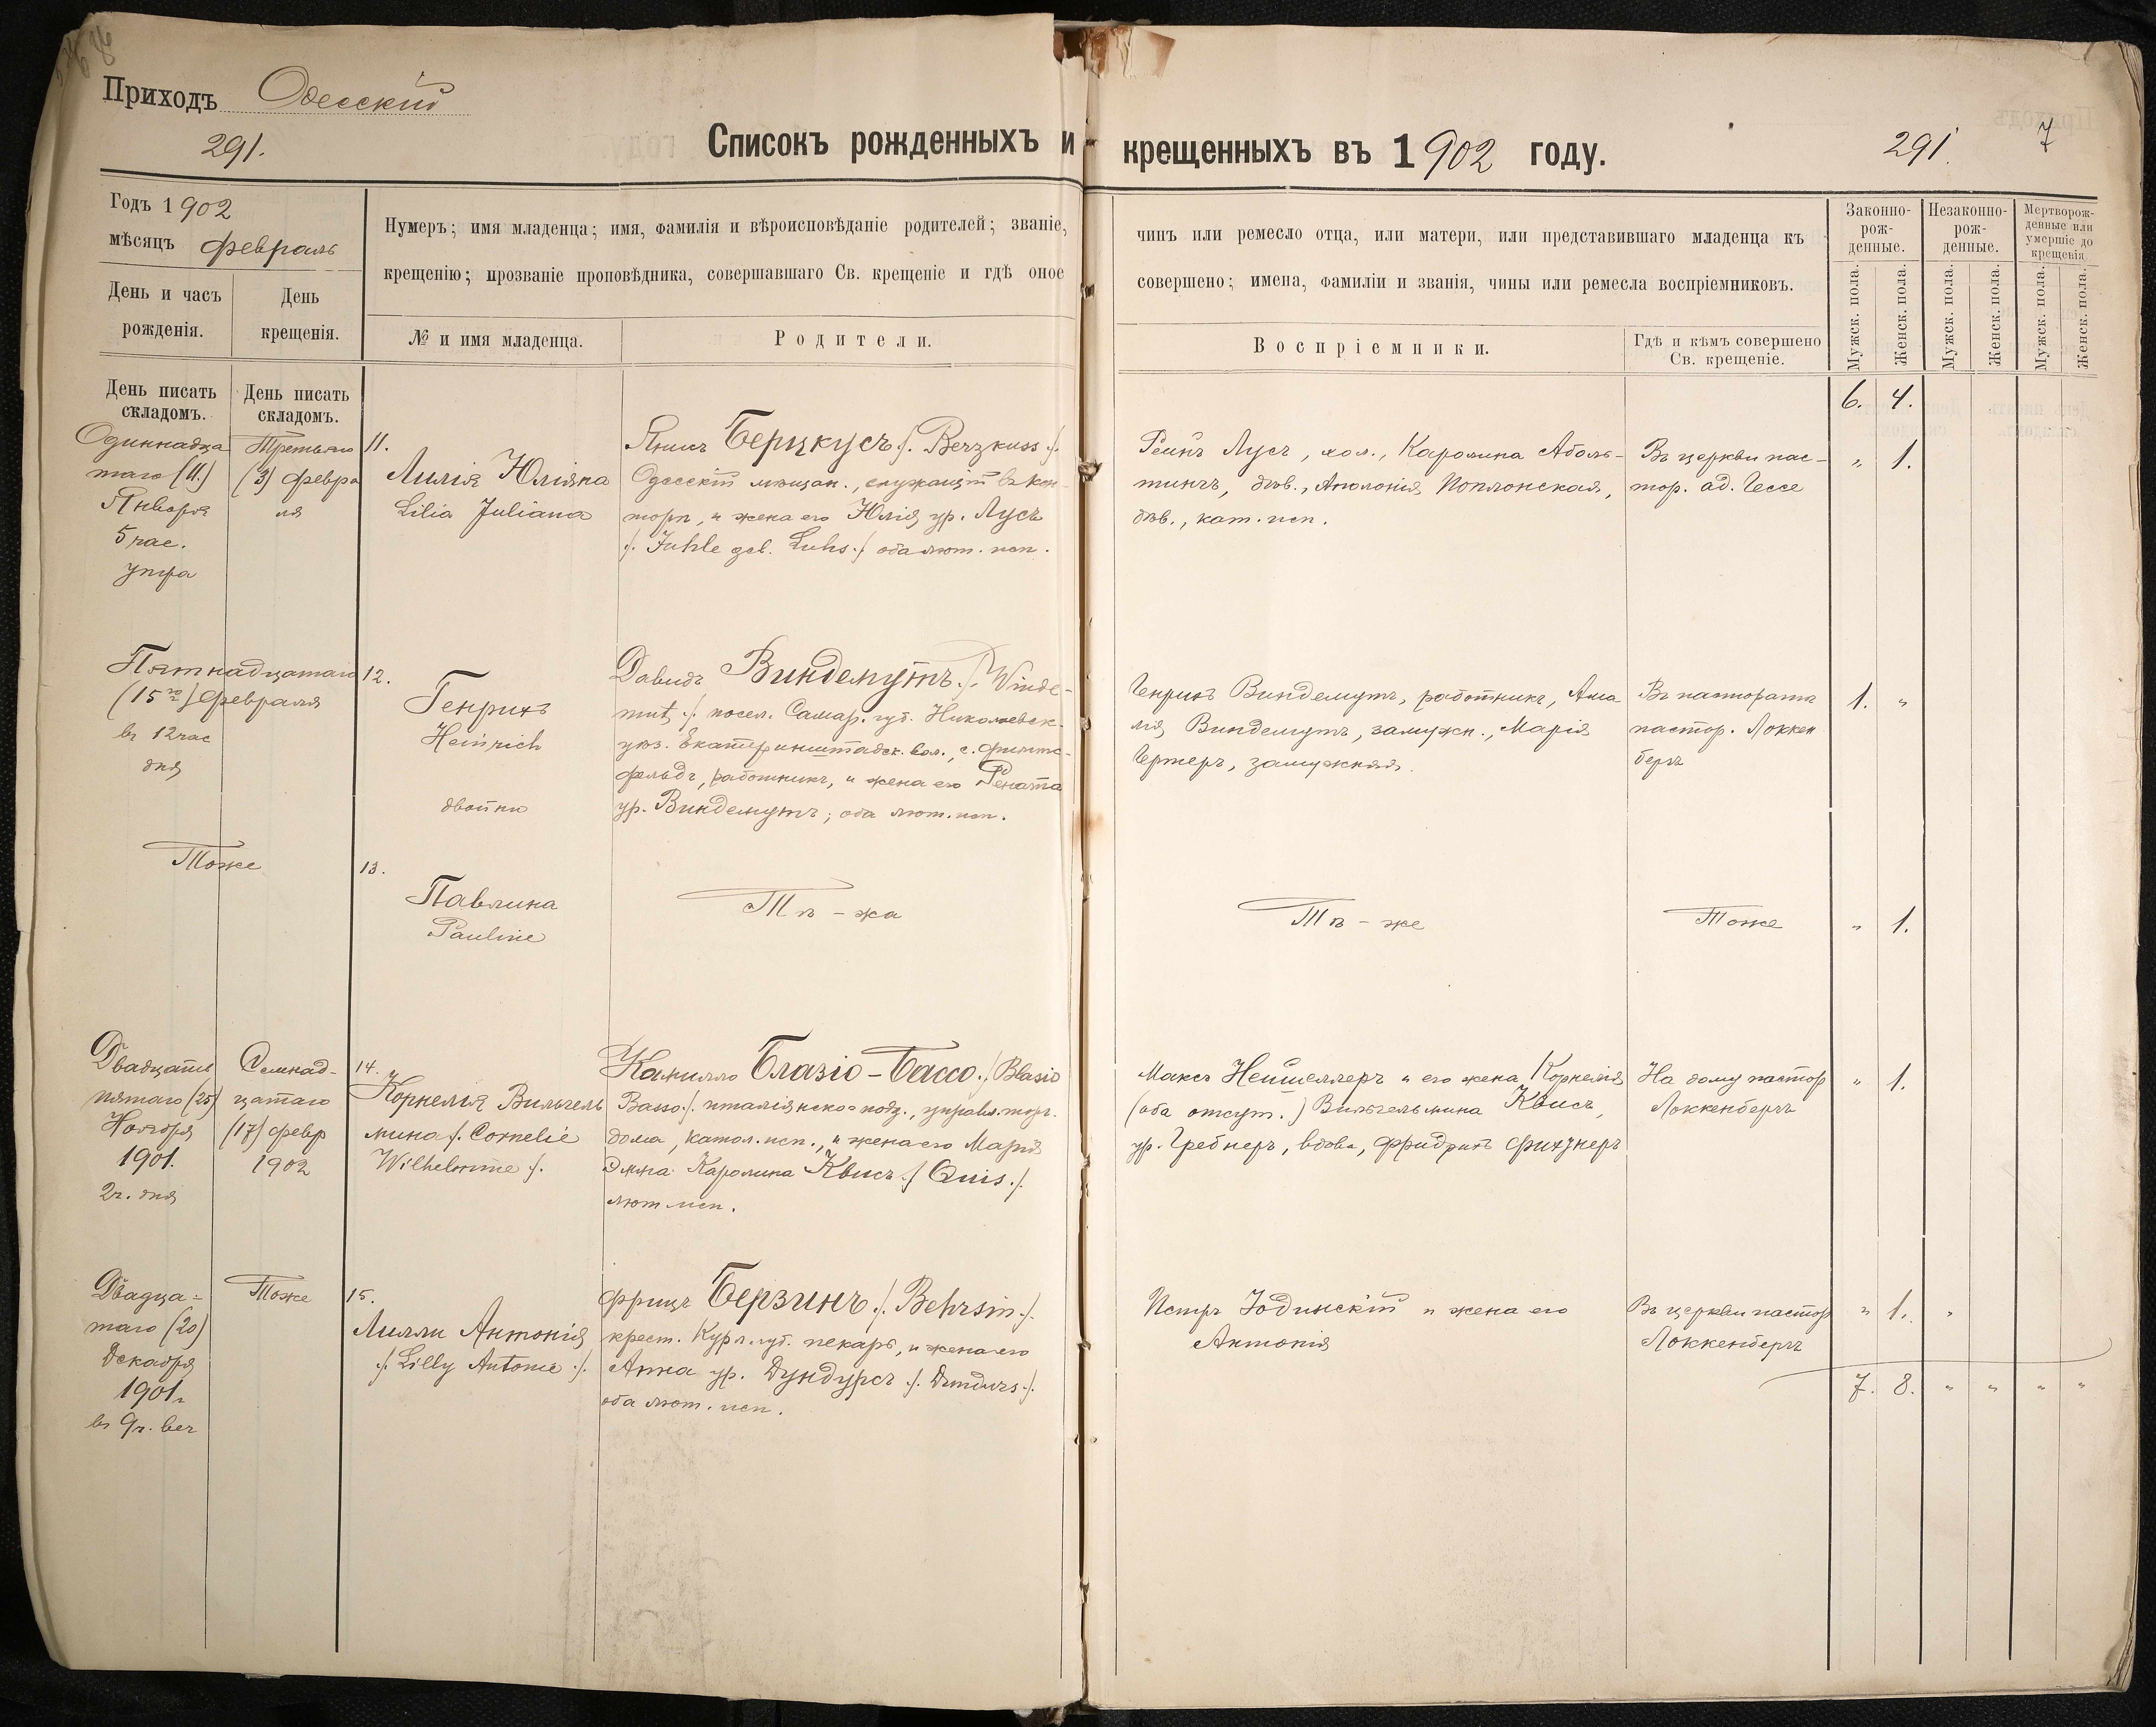 Приходъ Одесскій
291.
Списокъ рожденныхъ и крещенныхъ въ 1902 году.
291.
7
Годъ 1902
мѣсяцъ Февраль
День и часъ рожденія.
День крещенія.
Нумеръ; имя младенца; имя, фамилія и вѣроисповѣданіе родителей; званіе, чинъ или ремесло отца, или матери, или представившаго младенца къ
крещенію; прозваніе проповѣдника, совершавшаго Св. крещеніе и гдѣ оное совершено; имена, фамиліи и званія, чины или ремесла воспріемниковъ.
№ и имя младенца.
Родители.
Воспріемники.
Гдѣ и кѣмъ совершено
Св. крещеніе.
Законно-
рож-
денные.
Незаконно-
рож-
денные.
Мертворож-
денные или
умершіе до
крещенія
Мужск. пола.
Женск. пола.
Мужск. пола.
Женск. пола.
Мужск. пола.
Женск. пола.
День писать
складомъ.
День писать
складомъ.
6. 4.
Одиннадца
таго (11.)
Января
5 час.
утра
Третьяго
(3) Февра
ля
11.
Лилія Юліяна
Lilia Juliana
Янисъ Берцкусъ ./. Berzkuss ./.
Одесскій мѣщан., служащій въ кон-
торѣ, и жена его Юлія ур. Лусъ
./. Juhle geb. Luhs ./. оба лют. исп.
Рейнъ Лусъ, хол., Каролина Аболь-
тингъ, дѣв., Аполонія Поплонская,
дѣв., кат. исп.
Въ церкви пас-
тор. ад. Гессе
" 1.
Пятнадцатаго
(15го) Февраля
въ 12 час
дня
12.
Генрихъ
Heinrich
двойни
Давидъ Виндемутъ ./. Winde-
mut ./. посел. Самар. губ. Николаевск.
уѣз. Екатериништадск. вол., с.
фельдъ, работникъ, и жена его Рената
ур. Виндемутъ; оба лют. исп.
Генрихъ Виндемутъ, работникъ, Ама
лія Виндемутъ, замужн., Марія
Гертеръ, замужняя.
Въ пасторатѣ
пастор. Локкен
бергъ
1. "
Тоже
13.
Павлина
Pauline
Тѣ-жа
Тѣ-же
Тоже
" 1.
Двадцать
пятаго (25)
Ноября
1901.
2ч. дня
Семнад-
цатаго
(17) февр
1902
14.
Корнелія Вильгель
мина ./. Cornelie
Wilhelmine ./.
Камилло Блазіо-Бассо ./. Blasio
Basso ./. италіянско подд., управл. торг.
дома, катол. исп., и жена его Марія
Эмма Каролина Квисъ ./. Quis ./.
лют исп.
Максъ Неймеллеръ и его жена Корнелія
(оба отсут.) Вильгельмина Квисъ,
ур. Гребнеръ, вдова, Фридрихъ Фихтнеръ
На дому пастор
Локкенбергъ
" 1.
Двадца-
таго (20)
Декабря
1901г
въ 9ч. веч
Тоже
15.
Лилли Антонія
./. Lilly Antonie ./.
Фрицъ Берзинъ ./. Behrsin ./.
крест. Курл. губ. пекарь, и жена его
Анна ур. Дундурсъ ./. Dundurs ./.
оба лют. исп.
Петръ Юдинскій и жена его
Антонія
Въ церкви пастор
Локкенбергъ
" 1. "
7. 8. " " " "